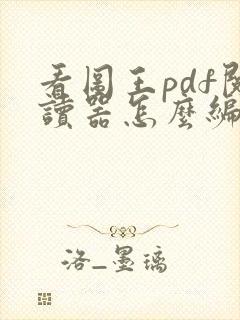 看图王pdf阅
讀器怎麼編
洛_墨璃